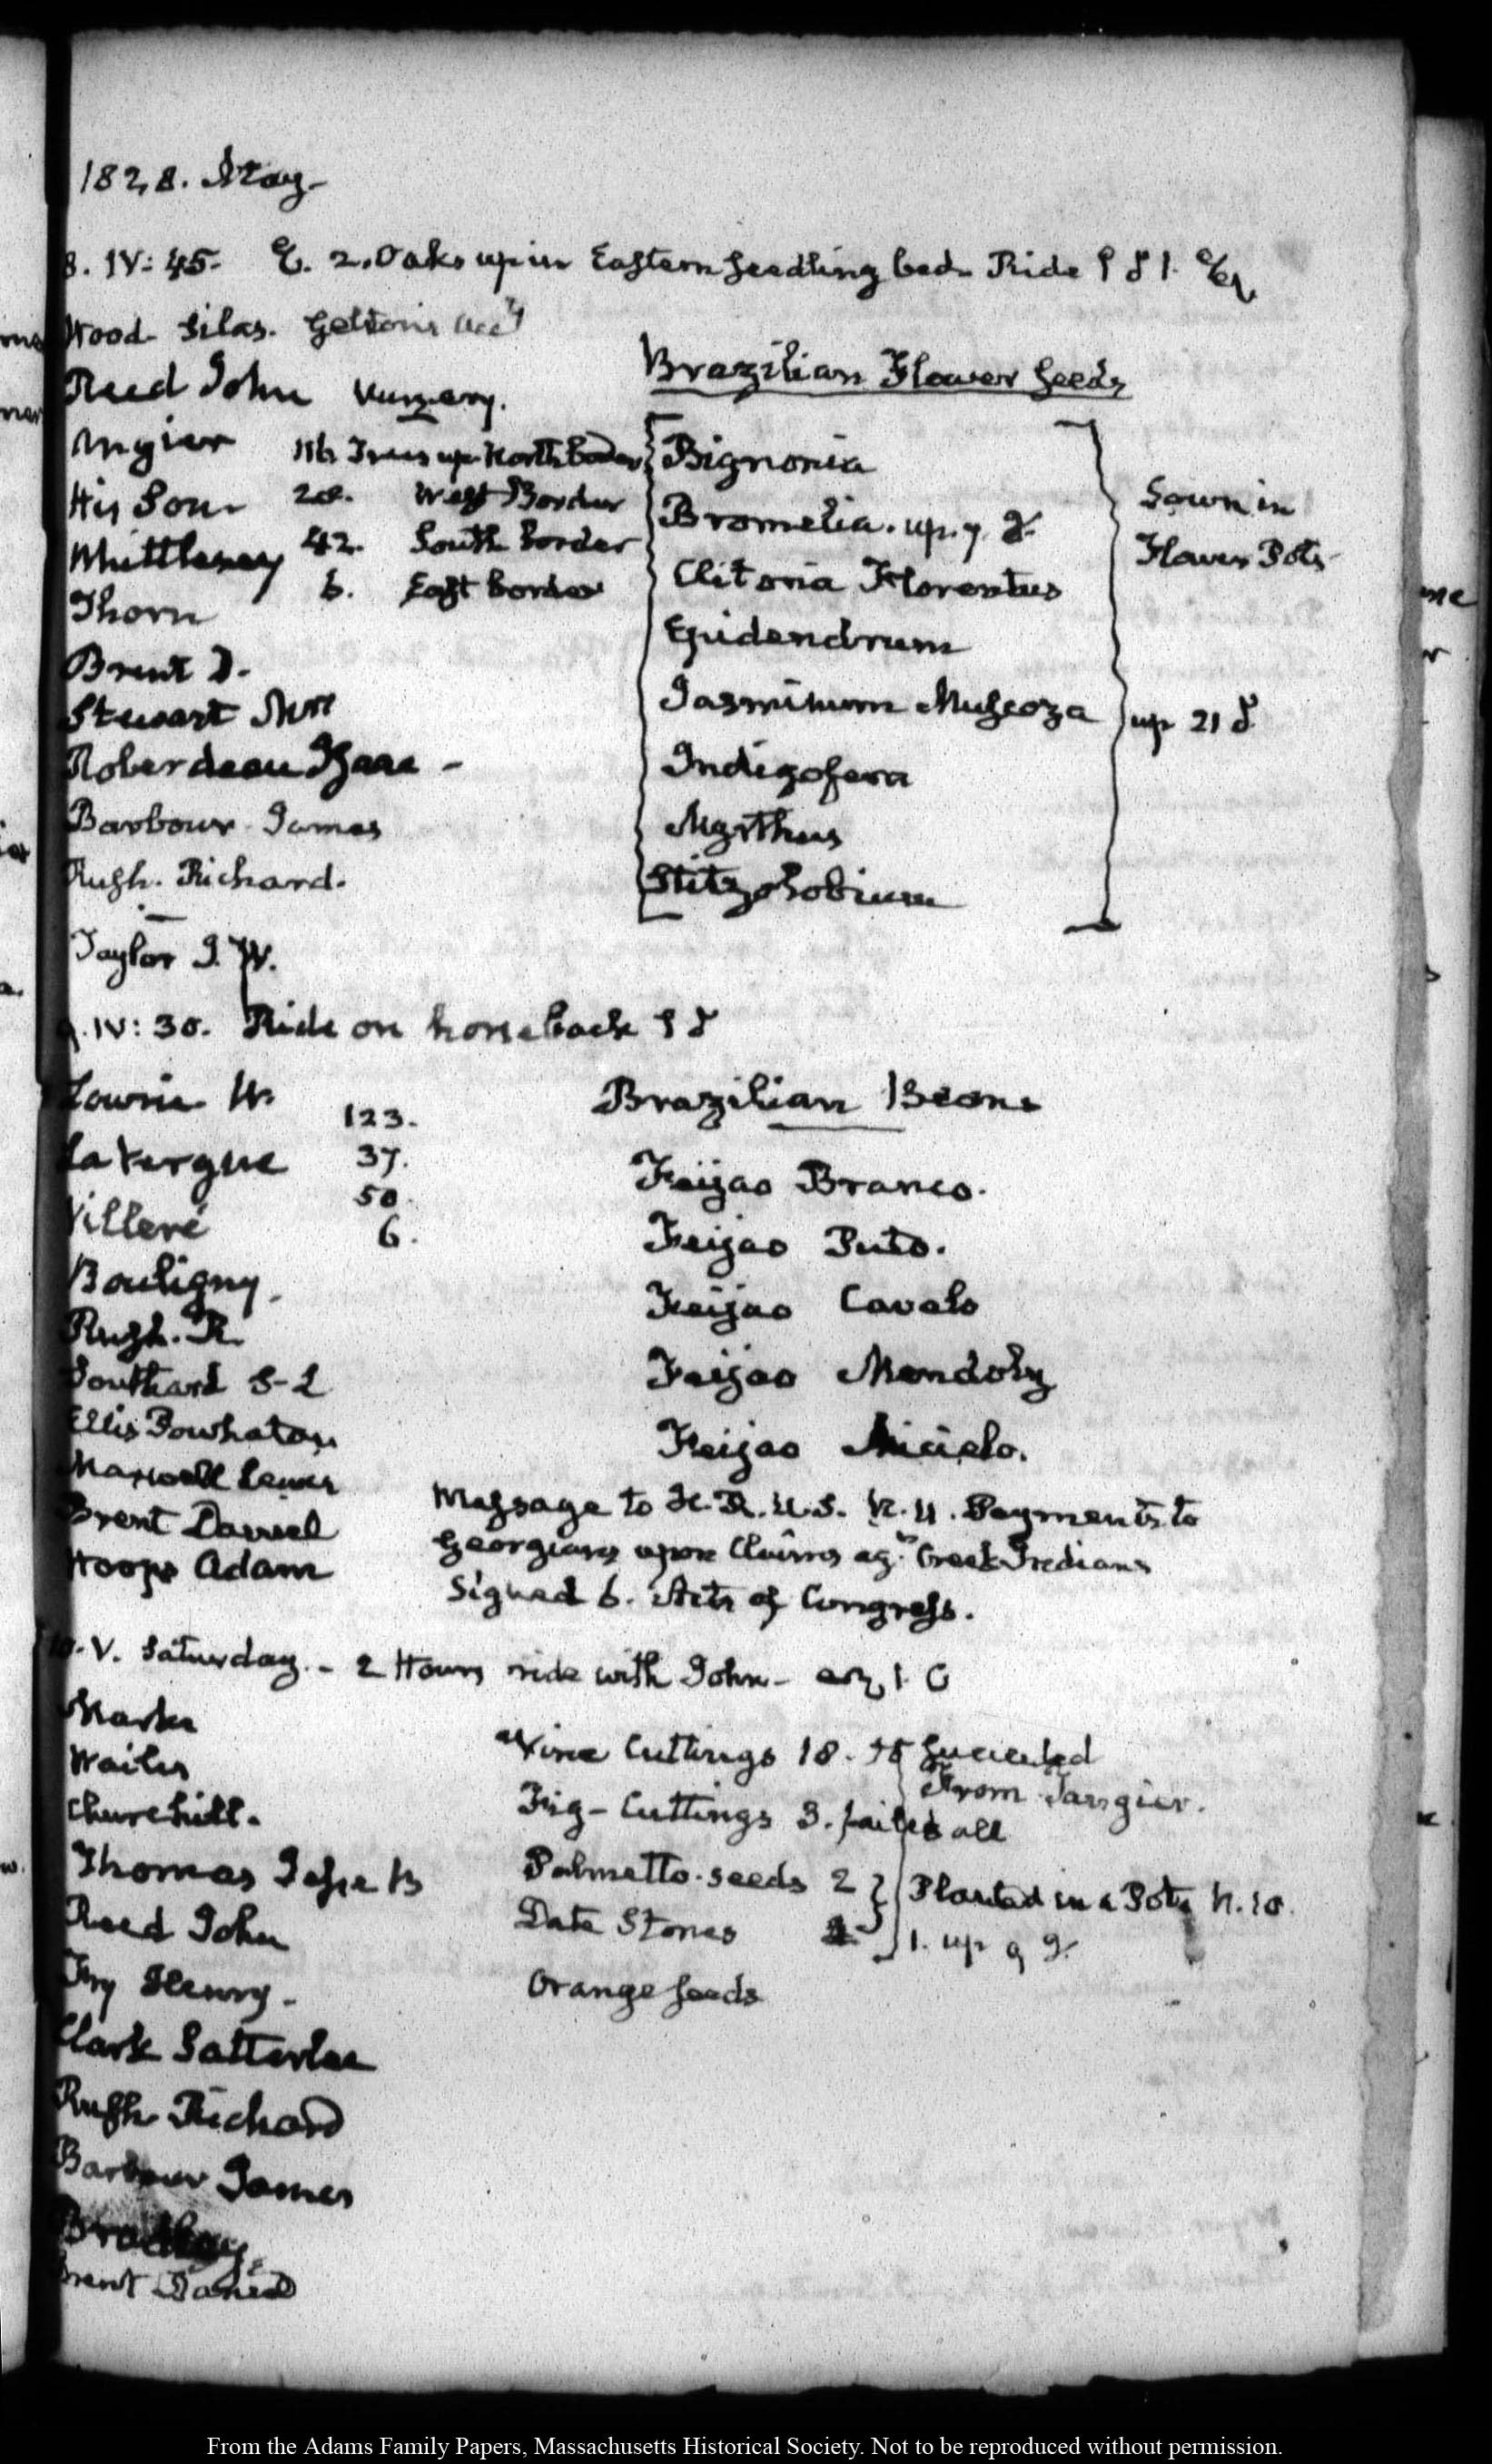 1828. May-
8. IV: 45. 2. Oaks up in Eastern Seedling bed. Ride
Wood. Silas. Gelston's Acct
Reed John Nursery.
Angier 116 Trees up North border
His Son 20. West Border
Whittlesey 42. South border
Thorn 6. East border
Brent D.
Stewart Mrs
Roberdeau Isaac -
Barbour James
Rush. Richard.
Taylor J. W.
Brazilian Flower Seeds
Bignonia
Bromelia. up. 7.
Clitoria Florentus
Epidendrum
Jasminum Muscoza
Indigofera
Myrthus
Stitzolobium
Sown in
Flower Pots
up 21
9. IV: 30. Ride on horseback
Lowrie W. 123.
La Vergne 37.
Villeré 50.
Bouligny. 6.
Rush. R.
Southard S-L
Ellis Powhatan
Maxwell Lewis
Brent Daniel
Hoops Adam
Brazilian Beans
Feijao Branco.
Feijao Puto.
Feijao Cavalo
Feijao Mendoby
Feijao
Message to H. R. U.S. N. 4. Payments to
Georgians upon Claims agt Creek Indians
Signed 6. Acts of Congress.
10. V. Saturday. - 2 Hours ride with John-
Marks
Wailes
Churchill.
Thomas Jesse B
Reed John
Fry Henry.
Clark Satterlee
Rush Richard
Barbour James
Bradley
Brent Daniel
Vine Cuttings 18. Succeeded
From Tangier.
Fig-Cuttings 3. failed all
Palmetto-seeds 2 Planted in a Pot N. 10.
Date Stones 1. up 9
Orange Seeds
From the Adams Family Papers, Massachusetts Historical Society. Not to be reproduced without permission.